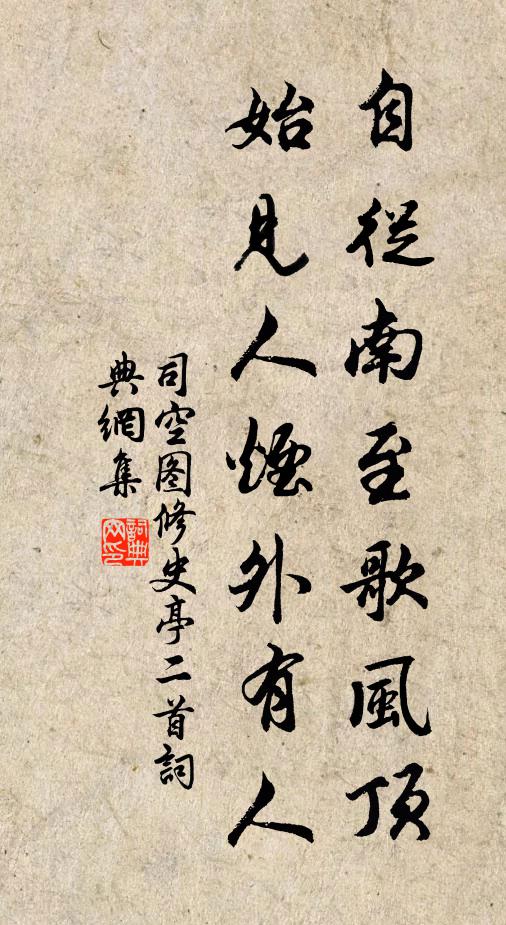 自從南至歌風頂
始見人煙外有人
司空图修史亭二首詞
典網集
詞典
网印